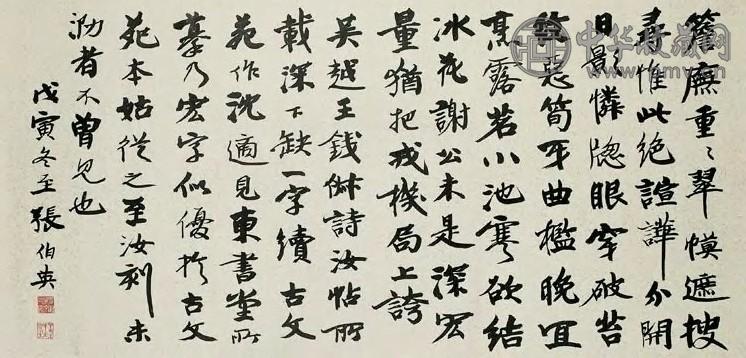 簷廡重〻翠幙遮搜
尋惟此絕諠譁分開
日影憐牕眼穿破苔
痕惡筍牙曲檻晚宜
烹露茗小池寒欲結
冰花謝公未是深宏
量猶把戎機局上誇
吳越王錢俶詩汝帖所
載深下缺一字續古文
苑作沈適見東書堂所
摹乃宏字似優於古文
苑本姑從之至汝刻未
泐者不曾見也
戊寅冬至張伯英
中华收藏网